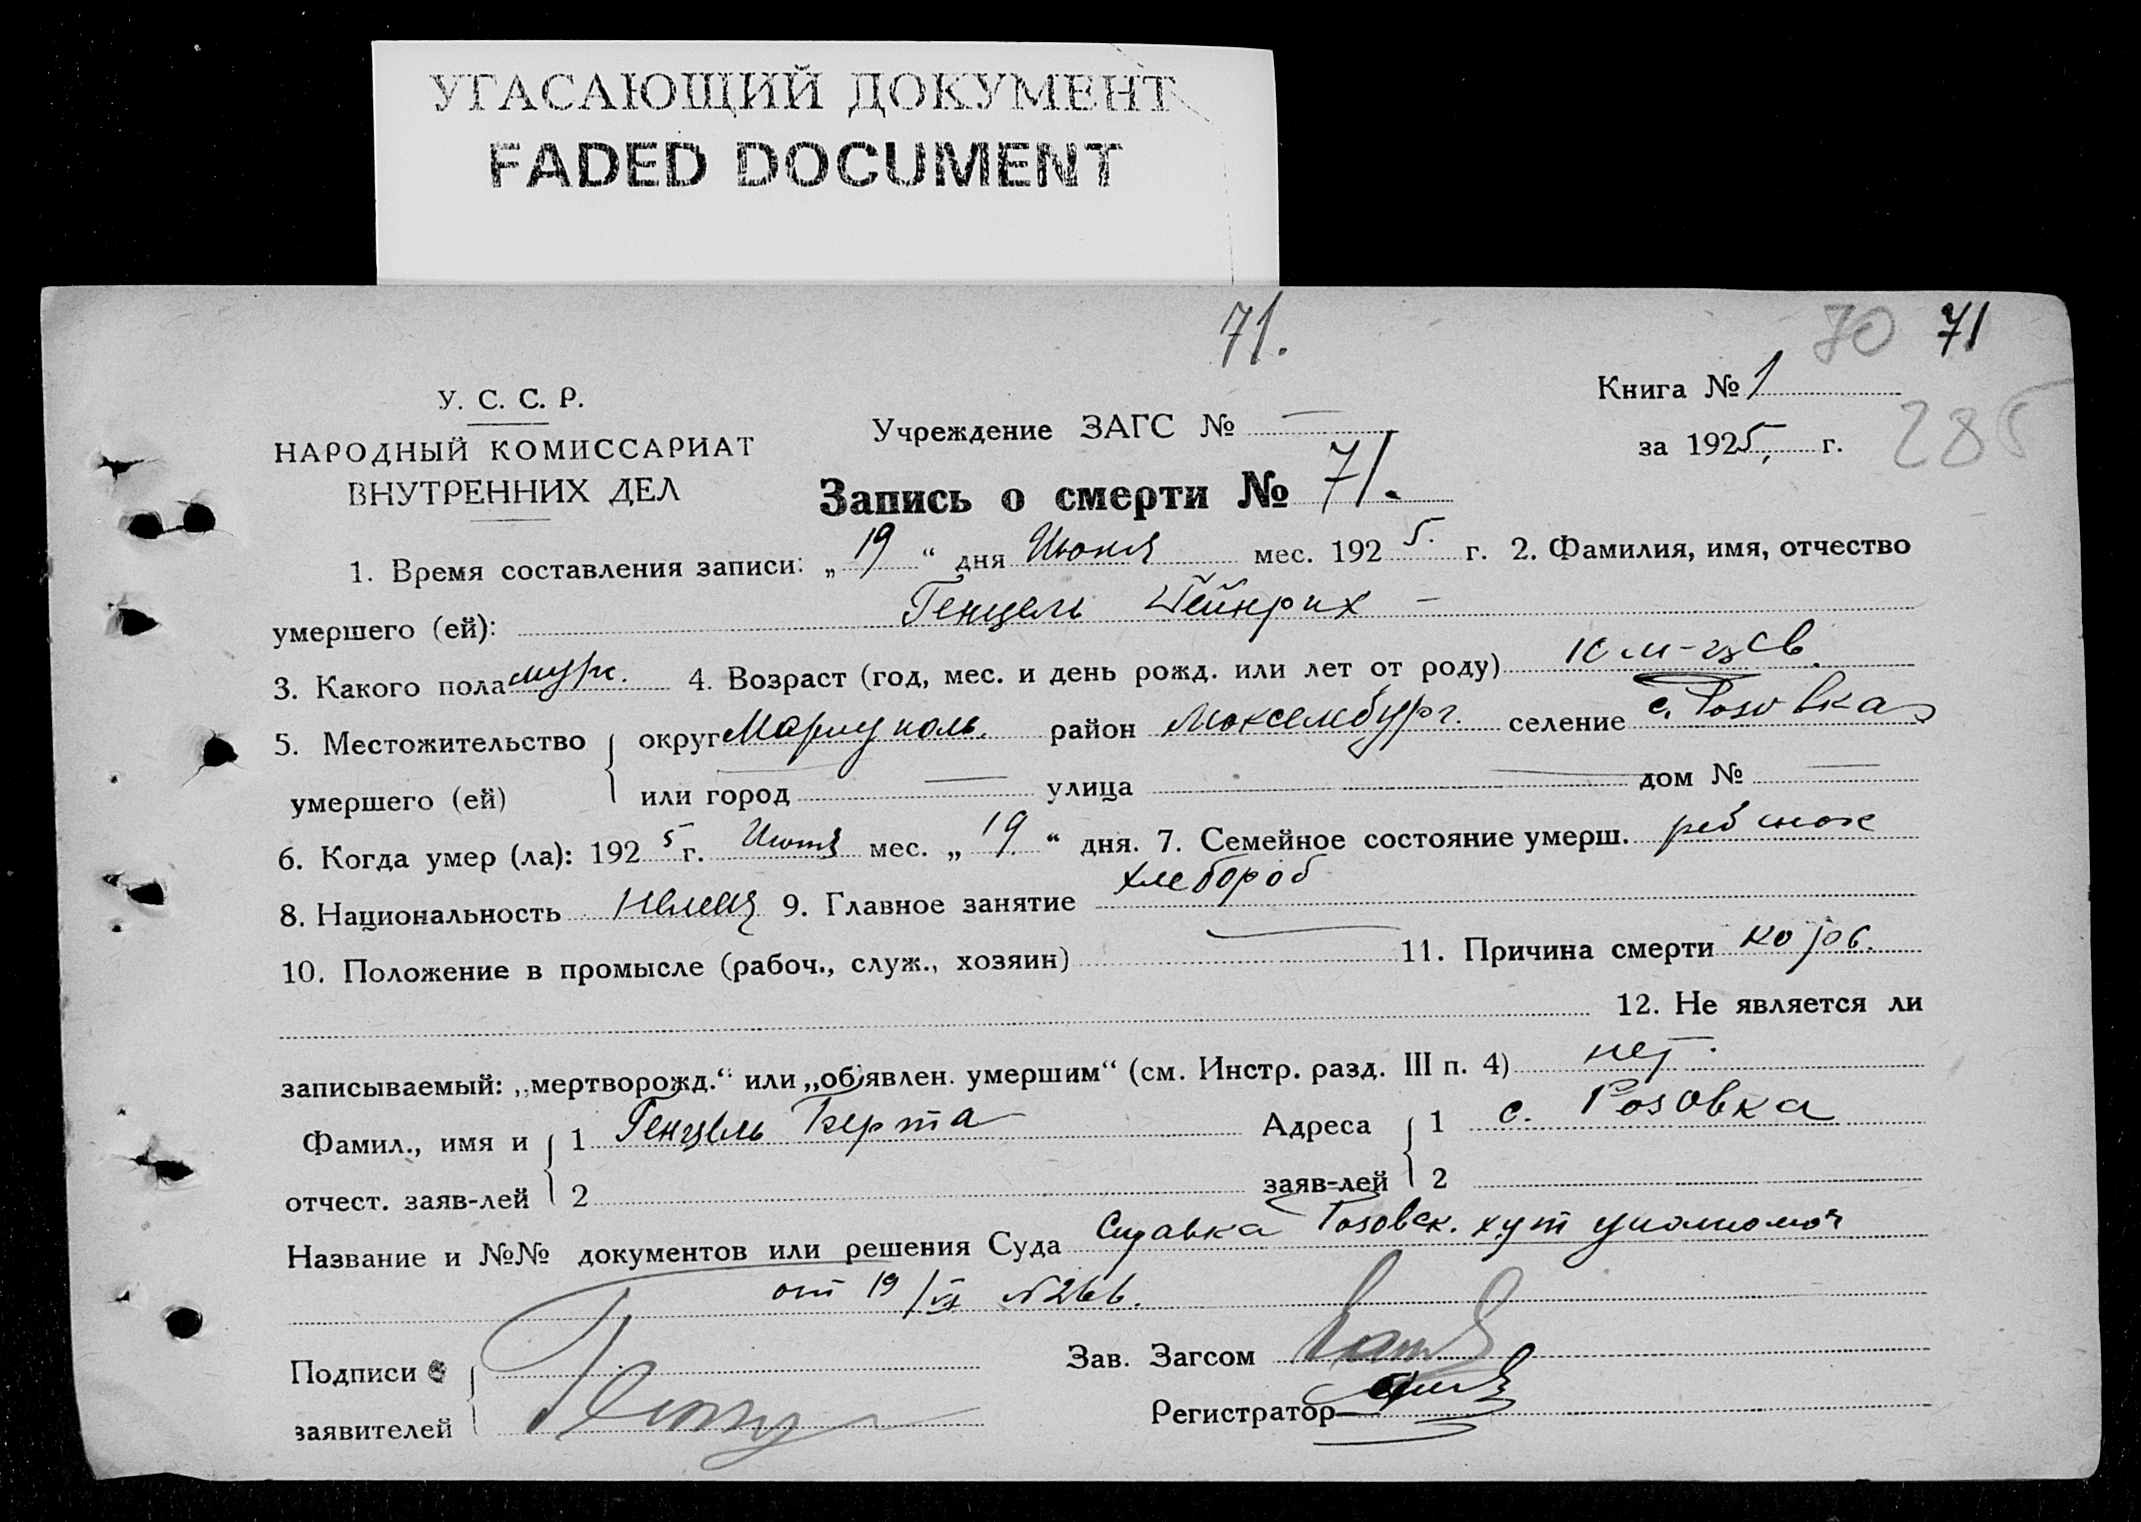 УГАСАЮЩИЙ ДОКУМЕНТ
FADED DOCUMENT
71.
70 71
У. С. С. Р.
НАРОДНЫЙ КОМИССАРИАТ
ВНУТРЕННИХ ДЕЛ
Учреждение ЗАГС № —
Книга № 1
за 1925, г.
285
Запись о смерти № 71.
1. Время составления записи: „19“ дня Июня мес. 1925. г. 2. Фамилия, имя, отчество
умершего (ей): Генцель Гейнрих —
3. Какого пола муж. 4. Возраст (год, мес. и день рожд. или лет от роду) 10 м-цев.
5. Местожительство округ Мариуполь. район Люксембург. селение с. Розовка
умершего (ей) или город — улица — дом № —
6. Когда умер (ла): 1925 г. Июня мес. „19“ дня. 7. Семейное состояние умерш. ребенок
8. Национальность немец 9. Главное занятие хлебороб
10. Положение в промысле (рабоч., служ., хозяин) — 11. Причина смерти
12. Не является ли
записываемый: „мертворожд.“ или „об'явлен. умершим“ (см. Инстр. разд. III п. 4) нет.
Фамил., имя и 1 Генцель Берта Адреса 1 с. Розовка
отчест. заяв-лей 2 заяв-лей 2
Название и №№ документов или решения Суда Справка Розовск. хут уполномоч
от 19/VI № 266.
Подписи Зав. Загсом
заявителей Регистратор